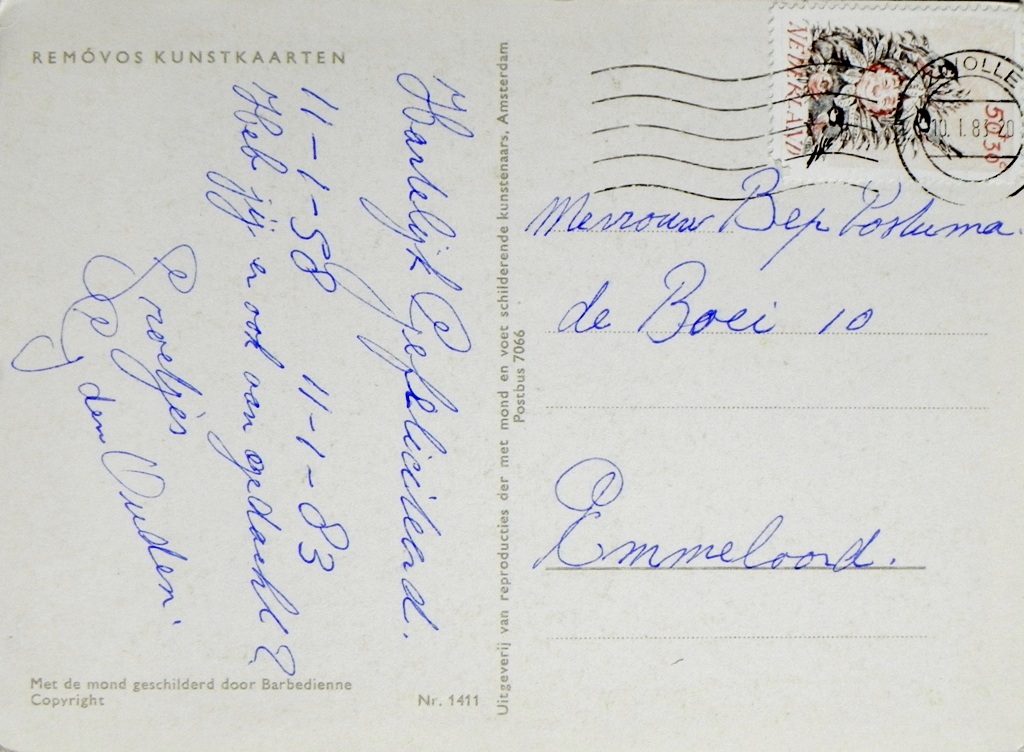 REMÓVOS KUNSTKAARTEN
Hartelijk Gefeliciteerd.
11-1-58 11-1-83
Heb jij er ook aan gedacht?
Groetjes
den Ouden
Met de mond geschilderd door Barbedienne
Copyright
Nr. 1411
Uitgeverij van reproducties der met mond en voet schilderende kunstenaars, Amsterdam
Postbus 7066
NEDERLAND
50+30c
ZWOLLE
10. 1.83 20
Mevrouw Bep Postuma.
de Boei 10
Emmeloord.